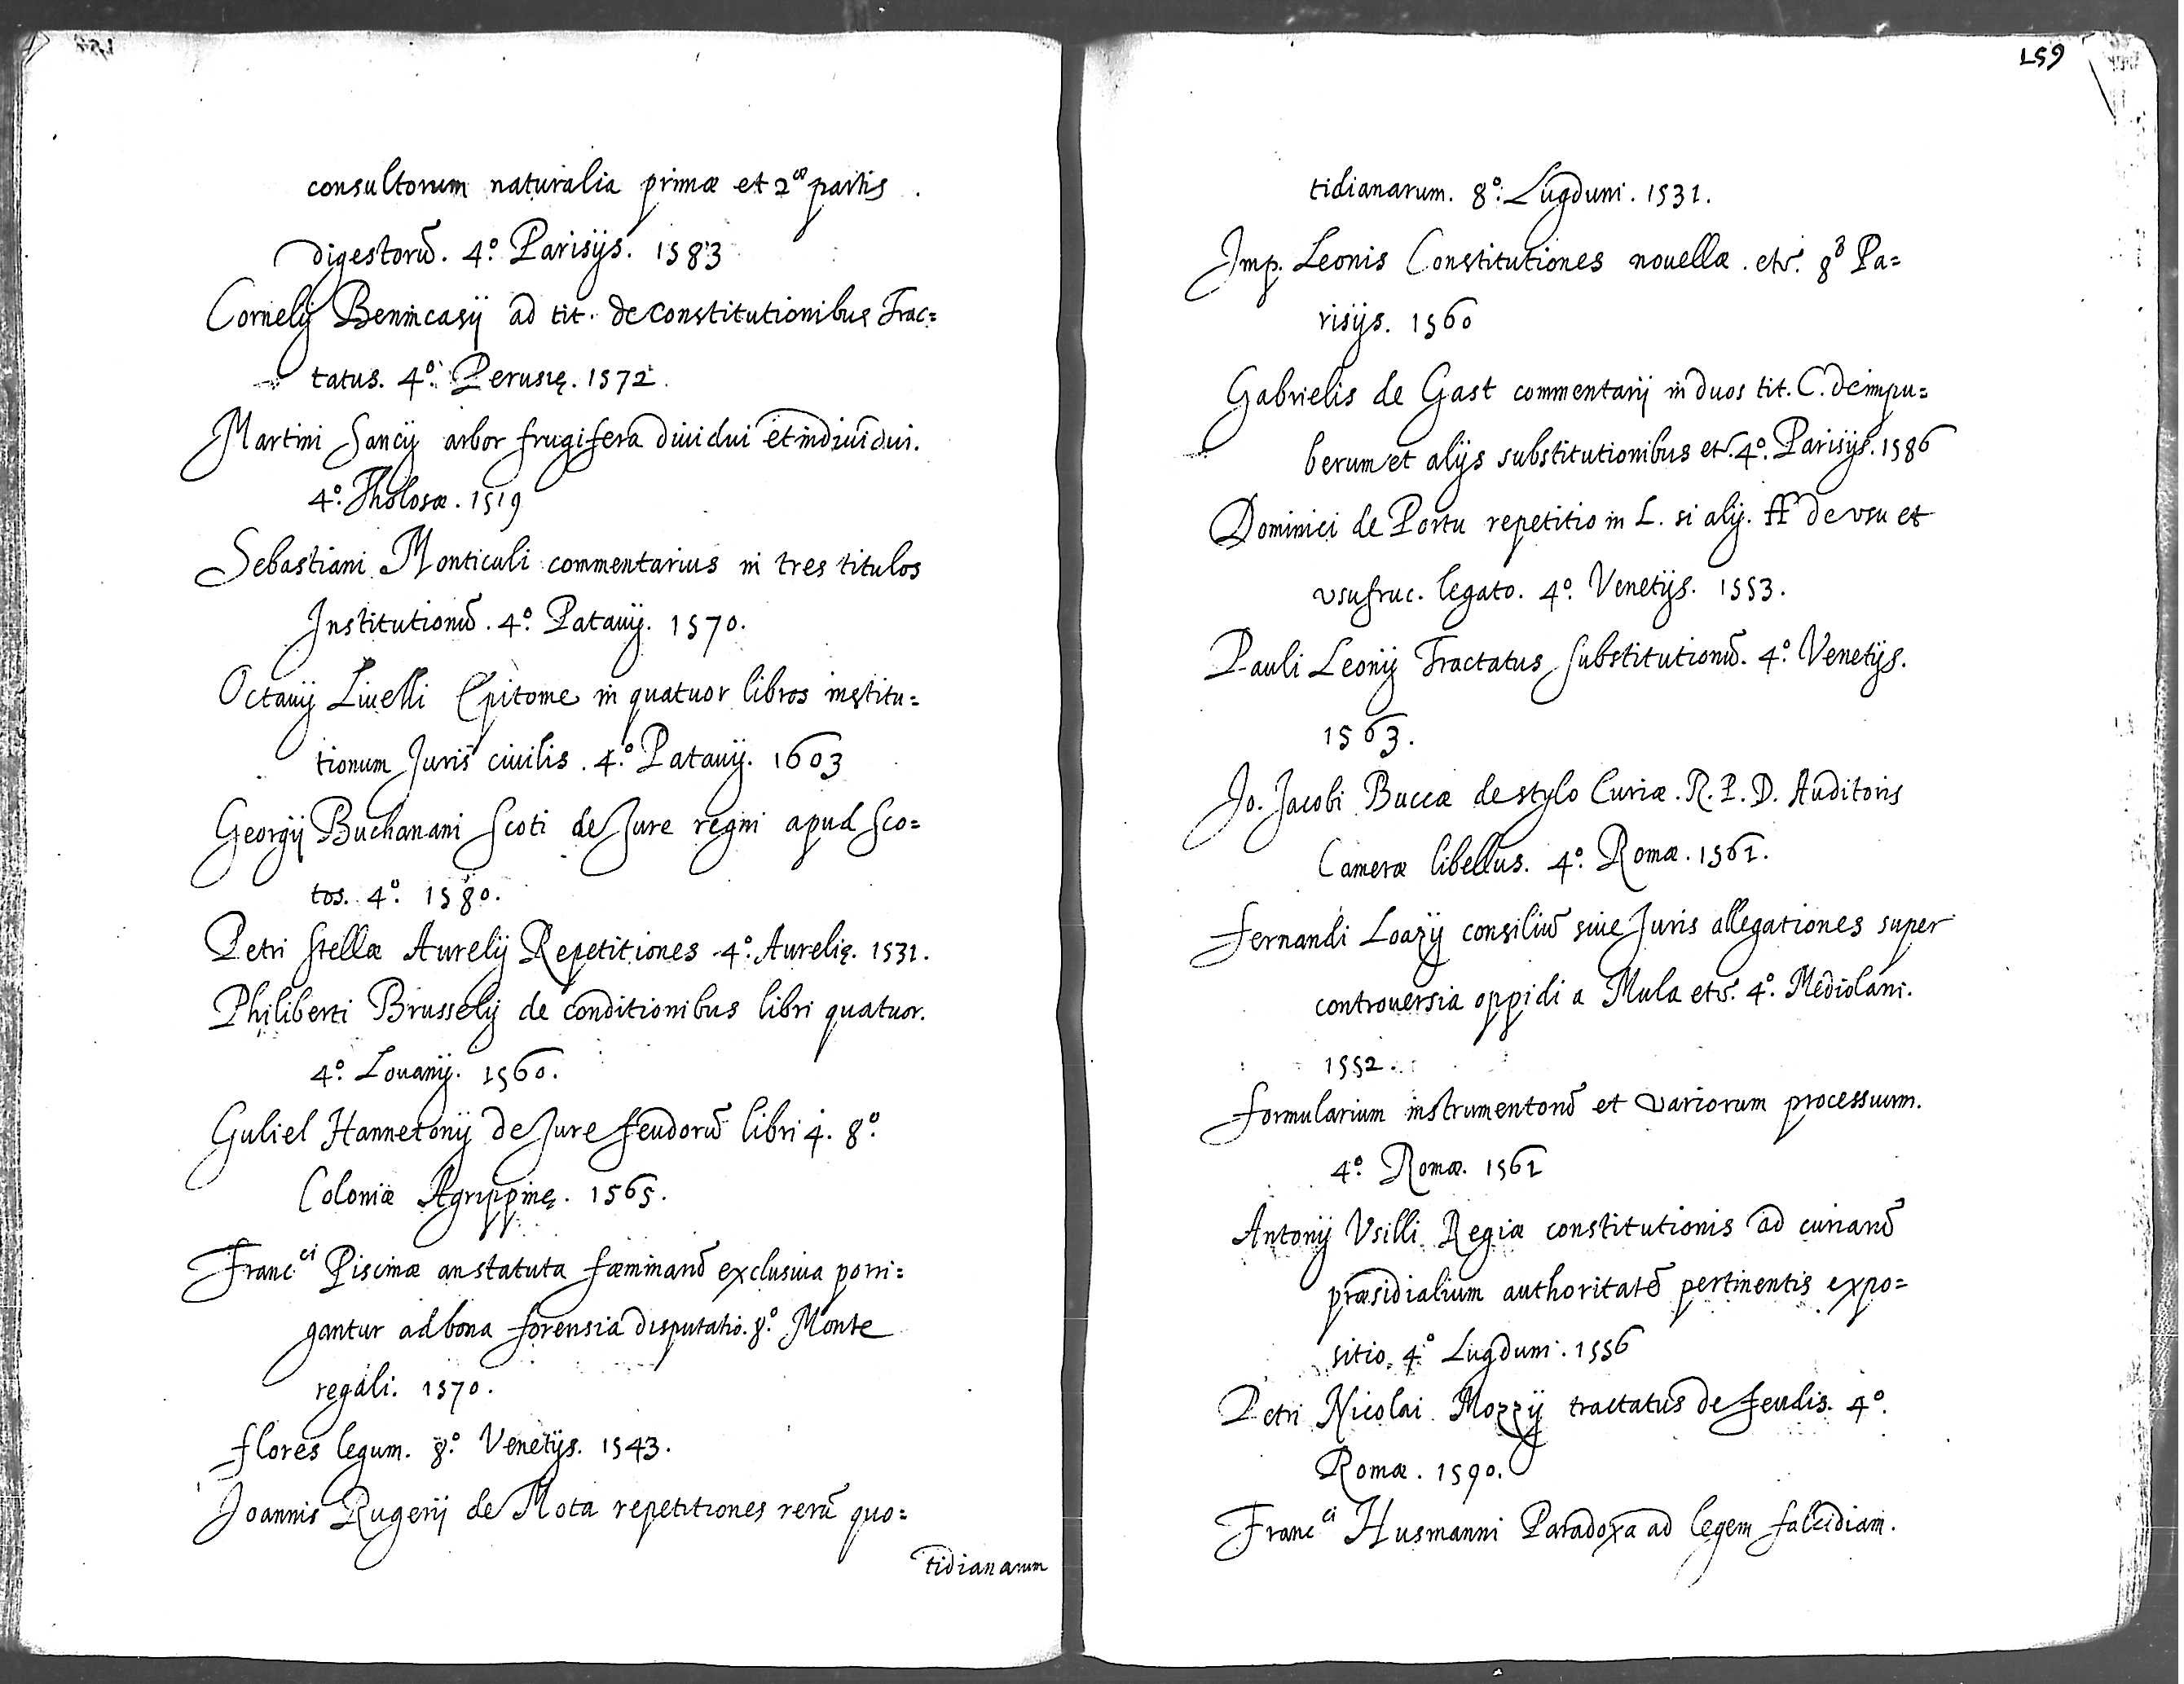 consultorum naturalia primæ et 2æ partis
digestorũ. 4º. Parisijs. 1583
Cornelij Benincasij ad tit. de Constitutionibus Trac=
tatus. 4º. Perusię. 1572.
Martini Sancij arbor frugifera diuidui et indiuidui.
4º. Tholosæ. 1519
Sebastiani Monticuli commentarius in tres titulos
Institutionũ. 4º. Patauij. 1570.
Octauij Liuelli Epitome in quatuor libros institu=
tionum Juris ciuilis. 4º. Patauij. 1603
Georgij Buchanani Scoti de Jure regni apud Sco=
tos. 4º. 1580.
Petri Stellæ Aurelij Repetitiones 4º. Aurelię. 1531.
Philiberti Brusselij de conditionibus libri quatuor.
4º. Louanij. 1560.
Guliel Hannetonij de Jure feudorũ libri 4. 8º.
Coloniæ Agrippinę. 1565.
Francci Piscinæ an statuta fæminarũ exclusiua porri=
gantur ad bona forensia disputatio. 8º. Monte
regali. 1570.
flores legum. 8º. Venetijs. 1543.
Joannis Rugerij de Mota repetitiones rerũ quo=
tidianarum
159
tidianarum. 8º. Lugduni. 1531.
Imp. Leonis Constitutiones nouellæ. etc. 8º Pa=
risijs. 1560
Gabrielis de Gast commentarij in duos tit. C. de impu=
berum et alijs substitutionibus etc. 4º. Parisijs. 1586
Dominici de Portu repetitio in L. si alij. ff de vsu et
vsufruc. legato. 4º. Venetijs. 1553.
Pauli Leonij Tractatus Substitutionũ. 4º. Venetijs.
1563.
Jo. Jacobi Buccæ de stylo Curiæ. R. P. D. Auditoris
Cameræ libellus. 4º. Romæ. 1561.
Fernandi Loazij consiliũ siue Juris allegationes super
controuersia oppidi a Mula etc. 4º. Mediolani.
1552.
formularium instrumentorũ et variorum processuum.
4º. Romæ. 1561
Antonij Vsilli Regiæ constitutionis ad curiarũ
præsidialium authoritatẽ pertinentis expo=
sitio. 4º Lugduni. 1556
Petri Nicolai Mozzij tractatus de feudis. 4º.
Romæ. 1590.
Francci Husmanni Paradoxa ad legem falcidiam.